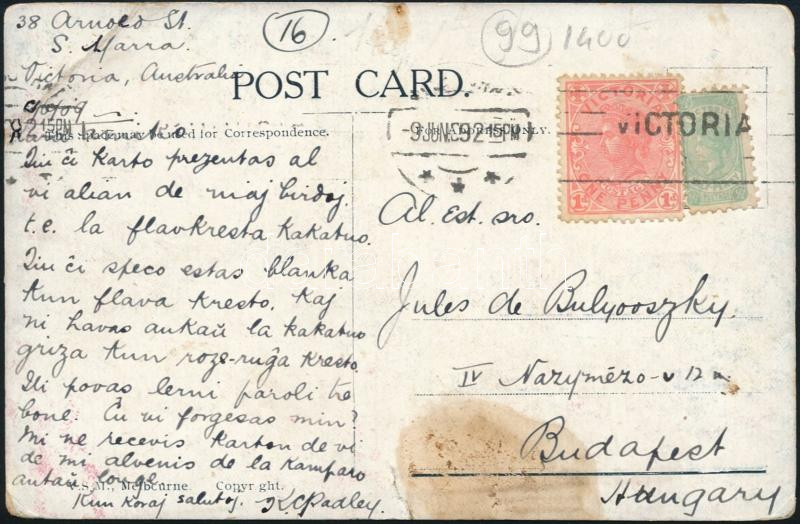 38 Arnold St
S. Yarra.
Victoria, Australia
16
99 1400
POST CARD.
This space may be used for Correspondence.
FOR ADDRESS ONLY.
9 JUN 09 2 15 PM
VICTORIA
VICTORIA
POSTAGE
ONE PENNY
1d 1d
Kara amiko
Tiu ĉi karto prezentas al
vi alian de miaj birdoj
t.e. la flavkresta kakatuo.
Tiu ĉi speco estas blanka
kun flava kresto. Kaj
ni havas ankaŭ la kakatuo
griza kun roze-ruĝa kresto.
Ili povas lerni paroli tre
bone. Ĉu vi forgesas min?
Mi ne recevis karton de vi
de mi alvenis de la kamparo
antaŭ longe.
V.S.M., Melbourne. Copyright.
Kun koraj salutoj. K C Padley.
Al. Est. sro.
Jules de Bulyooszky.
IV Nazymézo-u 12
Budapest
Hungary